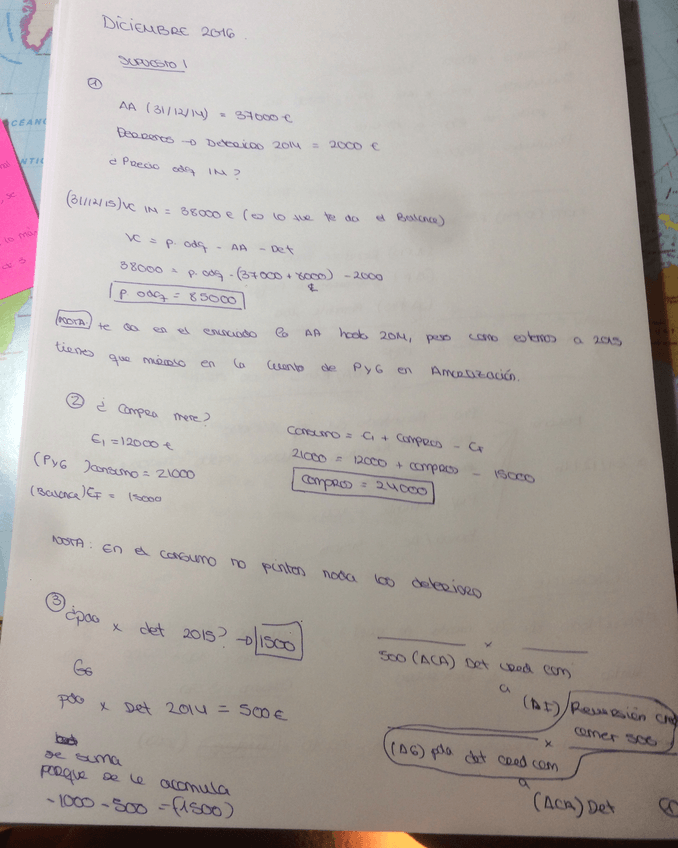 DICIEMBRE 2016.
SUPUESTO 1
①
AA (31/12/14) = 37000 €
Terrenos → Deterioro 2014 = 2000 €
¿Precio adq IM?
(31/12/15) VC IM = 38000 € (es lo que te da el Balance)
VC = p. adq - AA - Det
38000 = p. adq - (37000 + 8000) - 2000
p. adq = 85000
NOTA: te da en el enunciado la AA hasta 2014, pero como estamos a 2015
tienes que mirarlo en la cuenta de PyG en Amortización.
② ¿Compra merc?
Ei = 12000 €
(PyG) consumo = 21000
(Balance) Ef = 15000
Consumo = Ei + compras - Ef
21000 = 12000 + compras - 15000
compras = 24000
NOTA: En el consumo no pintan nada los deterioro
③ ¿pda x det 2015? → 1500
pda x Det 2014 = 500 €
se suma
porque se le acumula
-1000 - 500 = (1500)
x
500 (ACA) Det cred com
a
(AI) Reversión cre
comer 500
x
(AG) pda det cred com
a
(ACA) Det